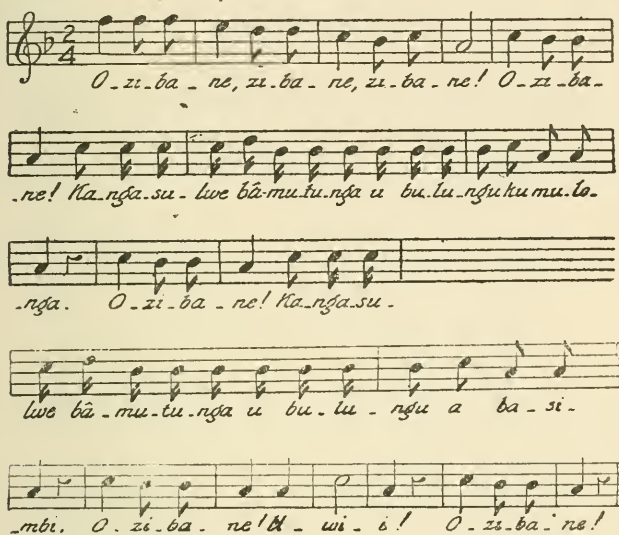 2 4
O-zi-ba-ne, zi-ba-ne, zi-ba-ne! O-zi-ba-
-ne! Ka-nga-su-lwe bâ-mu-tu-nga u bu-lu-ngu ku mu-lo-
-nga. O-zi-ba-ne! Ka-nga-su-
lwe bâ-mu-tu-nga u bu-lu-ngu a ba-si-
-mbi. O-zi-ba-ne! U-wi-i! O-zi-ba-ne!